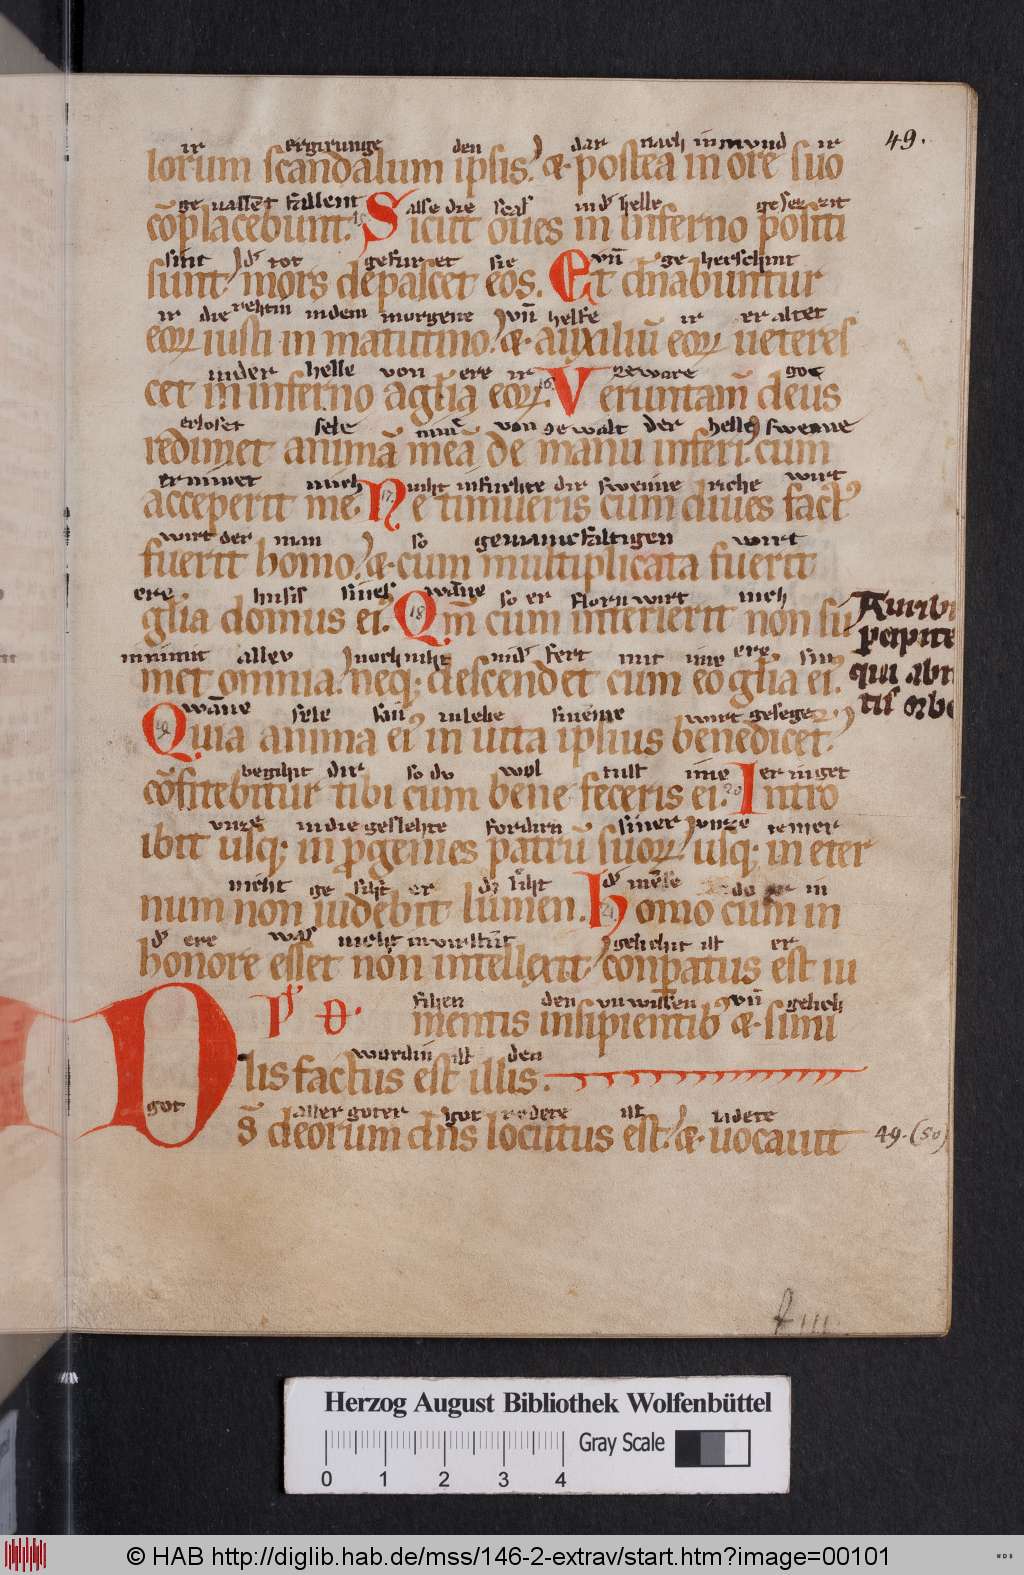 49.
ir ergirunge den dar nach in mund ir
lorum scandalum ipsis. & postea in ore suo
ge uallent fallent alse die scaf in d᷎ helle gesetzit
cōplacebunt. 15. Sicut oues in inferno positi
sint d᷎ tot gefuret sie vn̄ ge herschint
sunt mors depascet eos. Et dn̄abuntur
ir die rehtin in dem morgene vn̄ helfe ir er altet
eoꝝ iusti in matutino. & auxiliū eoꝝ ueteres
in der helle von ere ir geware got
cet in inferno a gl̄ia eoꝝ. 16. Veruntam̄ deus
erloset sele von gewalt der helle swenne
redimet animā meā de manu inferi. cum
er nimet mich niht infurhte dir swenne riche wirt
acceperit me. 17. Ne timueris cum diues fact᷒
wirt der man so wirt
fuerit homo. & cum multiplicata fuerit
ere husis sines wāne so er wirt nieh
gl̄ia domus ei᷒. 18. Qm̄ cum interierit non su
nimit allev noch niht mid᷎ fert mit ime ere sin
met omnia. neqꝫ descendet cum eo gl̄ia ei᷒.
wāne sele sin in lebe wirt geseget
19. Quia anima ei᷒ in uita ipsius benedicet᷒.
begiht dir so dv wol tust ime er inget
cōfitebitur tibi cum bene feceris ei. 20. Intro
vnze in die geslehte fordirn siner vnze iemer
ibit usqꝫ in ꝓgenies patrū suoꝝ usqꝫ in eter
nieht ge siht er dz liht d᷎ do er in
num non uidebit lumen. 21. Homo cum in
d᷎ ere was nieht gelichit ist er
honore esset non intellexit conparatus est iu
den vn wissen vn̄ gelich
mentis insipientib᷒ & simi
wordin ist den
lis factus est illis.
got aller goter got redete ladete
Ds̄ deorum dn̄s locutus est. & uocauit
49. (50)
Herzog August Bibliothek Wolfenbüttel
Gray Scale
0 1 2 3 4
© HAB http://diglib.hab.de/mss/146-2-extrav/start.htm?image=00101